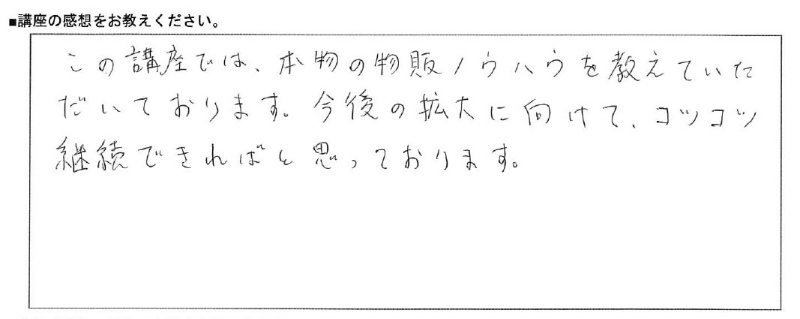 ■講座の感想をお教えください。
この講座では、本物の物販ノウハウを教えていた
だいております。今後の拡大に向けて、コツコツ
継続できればと思っております。